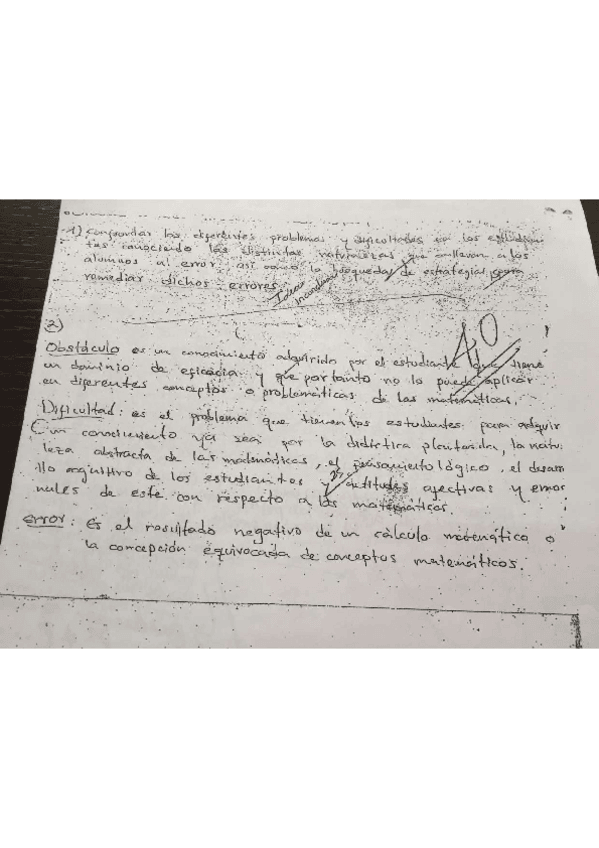 1) Comprender los diferentes problemas y dificultades en los estudian
tes conociendo las distintas naturalezas que conllevan a los
alumnos al error así como la búsqueda de estrategias para
remediar dichos errores.
Ideas
2)
10
Obstáculo es un conocimiento adquirido por el estudiante que tiene
un dominio de eficacia y que por tanto no lo puede aplicar
en diferentes conceptos o problemáticas de las matemáticas.
Dificultad: es el problema que tienen los estudiantes para adquirir
un conocimiento ya sea por la didáctica planteada, la natu
leza abstracta de las matemáticas, el pensamiento lógico, el desarro
llo cognitivo de los estudiantes y actitudes afectivas y emocio
nales de este con respecto a las matemáticas.
error: Es el resultado negativo de un cálculo matemático o
la concepción equivocada de conceptos matemáticos.